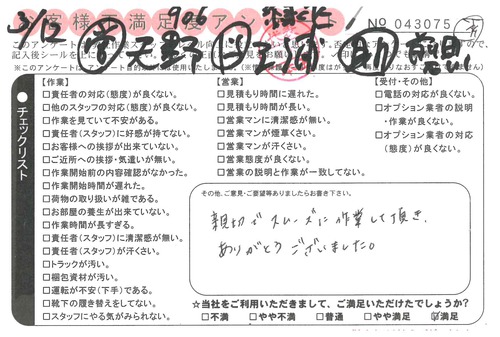 お客様ご満足度アンケート
No 043075
3/13
906
チェックリスト
【作業】
□責任者の対応(態度)が良くない。
□他のスタッフの対応(態度)が良くない。
□作業を見ていて不安がある。
□責任者(スタッフ)に好感が持てない。
□お客様への挨拶が出来ていない。
□ご近所への挨拶・気遣いが無い。
□作業開始前の内容確認がなかった。
□作業開始時間が遅れた。
□荷物の取り扱いが雑である。
□お部屋の養生が出来ていない。
□作業時間が長すぎる。
□責任者(スタッフ)に清潔感が無い。
□責任者(スタッフ)が汗くさい。
□トラックが汚い。
□梱包資材が汚い。
□運転が不安(下手)である。
□靴下の履き替えをしてない。
□スタッフにやる気がみられない。
【営業】
□見積もり時間に遅れた。
□見積もり時間が長い。
□営業マンに清潔感が無い。
□営業マンが煙草くさい。
□営業マンが汗くさい。
□営業態度が良くない。
□営業の説明と作業が一致してない。
【受付・その他】
□電話の対応が良くない。
□オプション業者の説明
・作業が良くない。
□オプション業者の対応
(態度)が良くない。
その他、ご意見・ご要望等ありましたらお書き下さい。
親切でスムーズに作業して頂き、
ありがとうございました。
☆当社をご利用いただきまして、ご満足いただけたでしょうか?
□不満 □やや不満 □普通 □やや満足 ☑満足